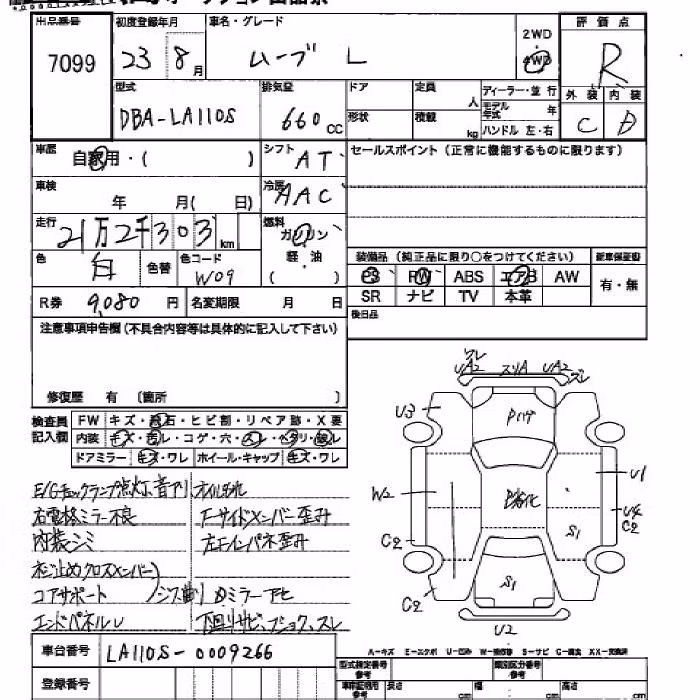 出品番号 初度登録年月 車名・グレード 2WD 評価点
7099 23年8月 ムーブ L 4WD R
型式 排気量 ドア 定員 人 ディーラー・並行 外装 内装
DBA-LA110S 660cc 形状 積載 kg モデル年式 年 C D
ハンドル 左・右
車歴 自家用・( ) シフト AT セールスポイント(正常に機能するものに限ります)
車検 年 月( 日) 冷房 AAC
走行 21万2千303km 燃料 ガソリン
色 白 色替 色コード W09 軽・油 ( )
装備品(純正品に限り○をつけてください) 新車保証書
PS PW ABS エアB AW 有・無
R券 9,080円 名変期限 月 日 SR ナビ TV 本革
後日品
注意事項申告欄(不具合内容等は具体的に記入して下さい)
修復歴 有 〔箇所 〕
検査員記入欄 FW キズ・飛石・ヒビ割・リペア跡・X要
内装 キズ・汚レ・コゲ・穴・スレ・ヘタリ・破レ
ドアミラー キズ・ワレ ホイール・キャップ キズ・ワレ
E/Gチェックランプ点灯、音アリ オイル汚れ
右電格ミラー不良 左サイドメンバー歪み
内装シミ 左インパネ歪み
コアサポート
エンドパネルU 下回りサビ、プショク、スレ
スレ UA2 スリA UA2 スレ
U3 Pハゲ
U1
W2 劣化 U4
C2 S1 C2
C2 S1
U2
A-キズ E-エクボ U-凹み W-補修跡 S-サビ C-腐食 XX-交換済
車台番号 LA110S-0009266 型式指定番号 参考 類別区分番号 参考
登録番号 車庫証明用 参考 長さ cm 幅 cm 高さ cm